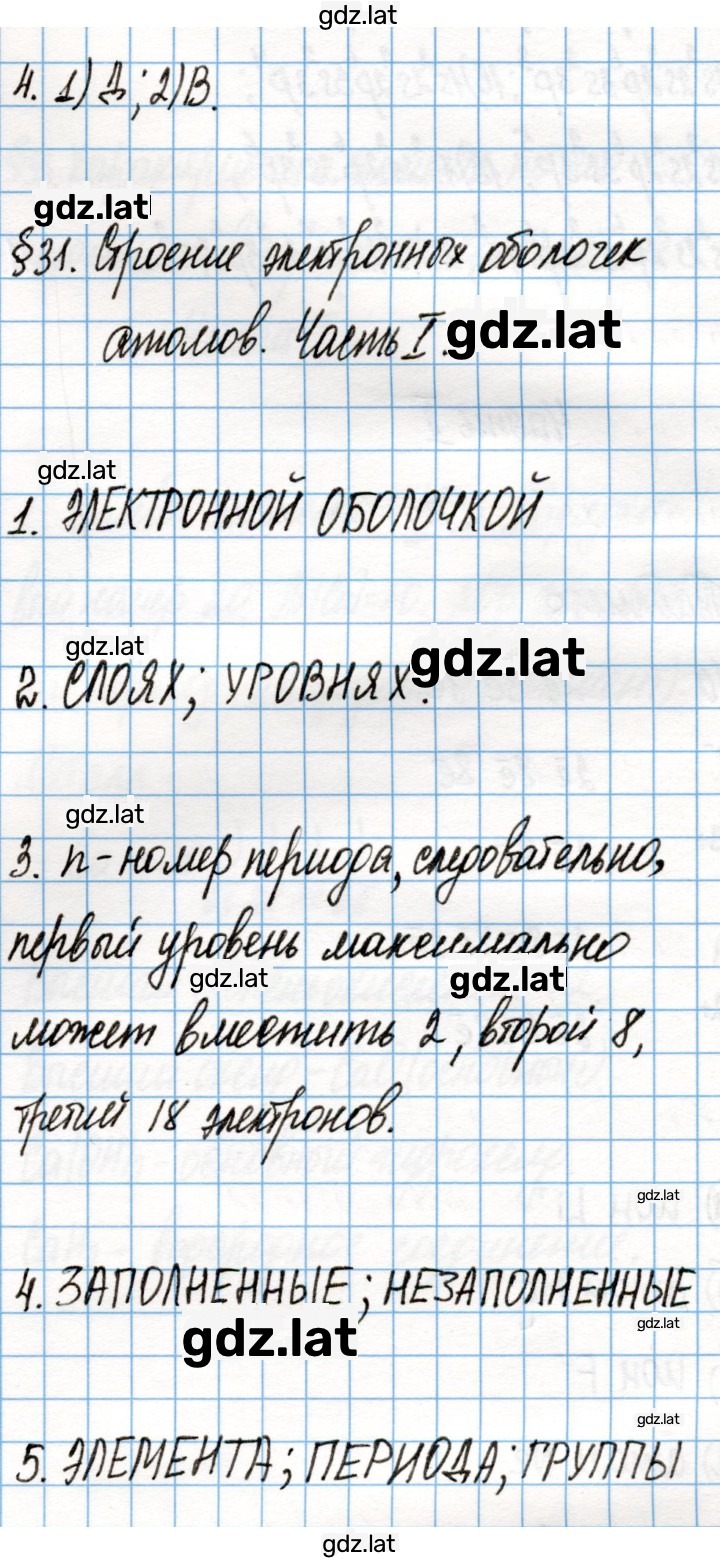 gdz.lat
4. 1) Д; 2) В.
gdz.lat
§31. Строение электронных оболочек
атомов. Часть I. gdz.lat
gdz.lat
1. ЭЛЕКТРОННОЙ ОБОЛОЧКОЙ
gdz.lat
gdz.lat
2. СЛОЯХ; УРОВНЯХ.
gdz.lat
3. n - номер периода, следовательно,
первый уровень максимально
gdz.lat gdz.lat
может вместить 2, второй 8,
третий 18 электронов.
gdz.lat
4. ЗАПОЛНЕННЫЕ; НЕЗАПОЛНЕННЫЕ
gdz.lat gdz.lat
gdz.lat
5. ЭЛЕМЕНТА; ПЕРИОДА; ГРУППЫ
gdz.lat